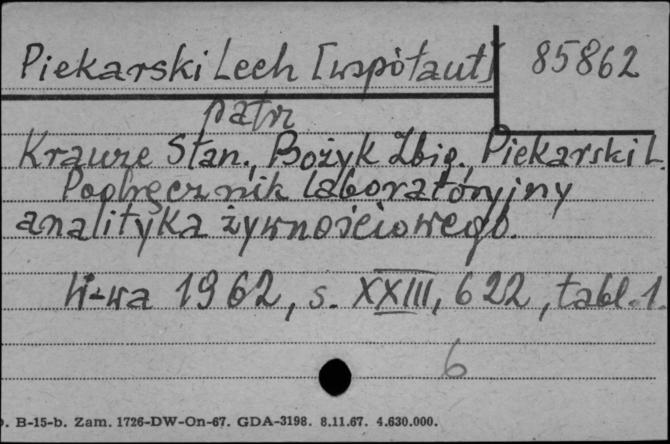 Piekarski Lech [współaut] 85862
patrz
Krauze Stan., Bożyk Zbig., Piekarski L.
Podręcznik laboratoryjny
analityka żywnościowego.
W-wa 1962, s. XXIII, 622, tabl. 1.
6
. B-15-b. Zam. 1726-DW-On-67. GDA-3198. 8.11.67. 4.630.000.